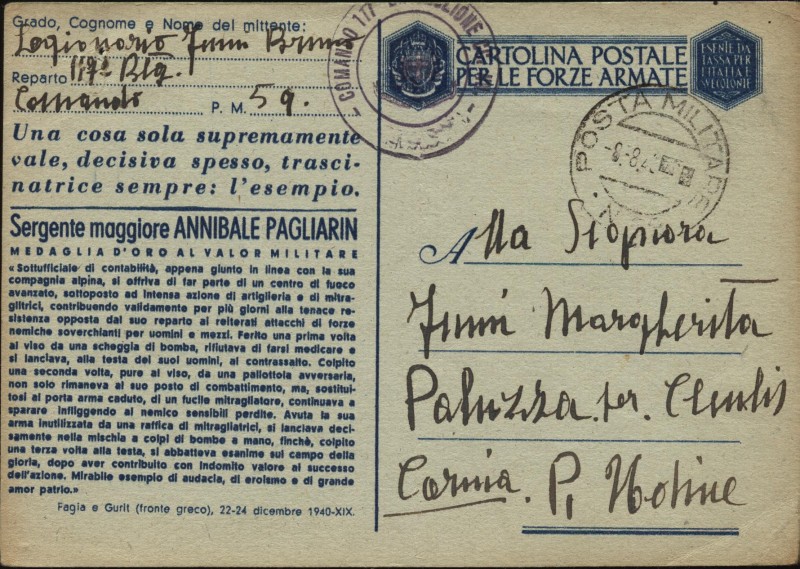 Grado, Cognome e Nome del mittente:
Legionario Bruno
Reparto 117ª Btg.
Comando P. M. 59.
Una cosa sola supremamente
vale, decisiva spesso, trasci-
natrice sempre: l'esempio.
Sergente maggiore ANNIBALE PAGLIARIN
MEDAGLIA D'ORO AL VALOR MILITARE
«Sottufficiale di contabilità, appena giunto in linea con la sua
compagnia alpina, si offriva di far parte di un centro di fuoco
avanzato, sottoposto ad intensa azione di artiglieria e di mitra-
gliatrici, contribuendo validamente per più giorni alla tenace re-
sistenza opposta dal suo reparto ai reiterati attacchi di forze
nemiche soverchianti per uomini e mezzi. Ferito una prima volta
al viso da una scheggia di bomba, rifiutava di farsi medicare e
si lanciava, alla testa dei suoi uomini, al contrassalto. Colpito
una seconda volta, pure al viso, da una pallottola avversaria,
non solo rimaneva al suo posto di combattimento, ma, sostitui-
tosi al porta arma caduto, di un fucile mitragliatore, continuava a
sparare infliggendo al nemico sensibili perdite. Avuta la sua
arma inutilizzata da una raffica di mitragliatrici, si lanciava deci-
samente nella mischia a colpi di bombe a mano, finchè, colpito
una terza volta alla testa, si abbatteva esanime sul campo della
gloria, dopo aver contribuito con indomito valore al successo
dell'azione. Mirabile esempio di audacia, di eroismo e di grande
amor patrio.»
Fagia e Gurit (fronte greco), 22-24 dicembre 1940-XIX.
COMANDO 117
CARTOLINA POSTALE
PER LE FORZE ARMATE
ESENTE DA
TASSA PER
L'ITALIA E
SVE COLONIE
POSTA MILITARE
Alla Signora
Margherita
Paluzza per Cleulis
Carnia. P.